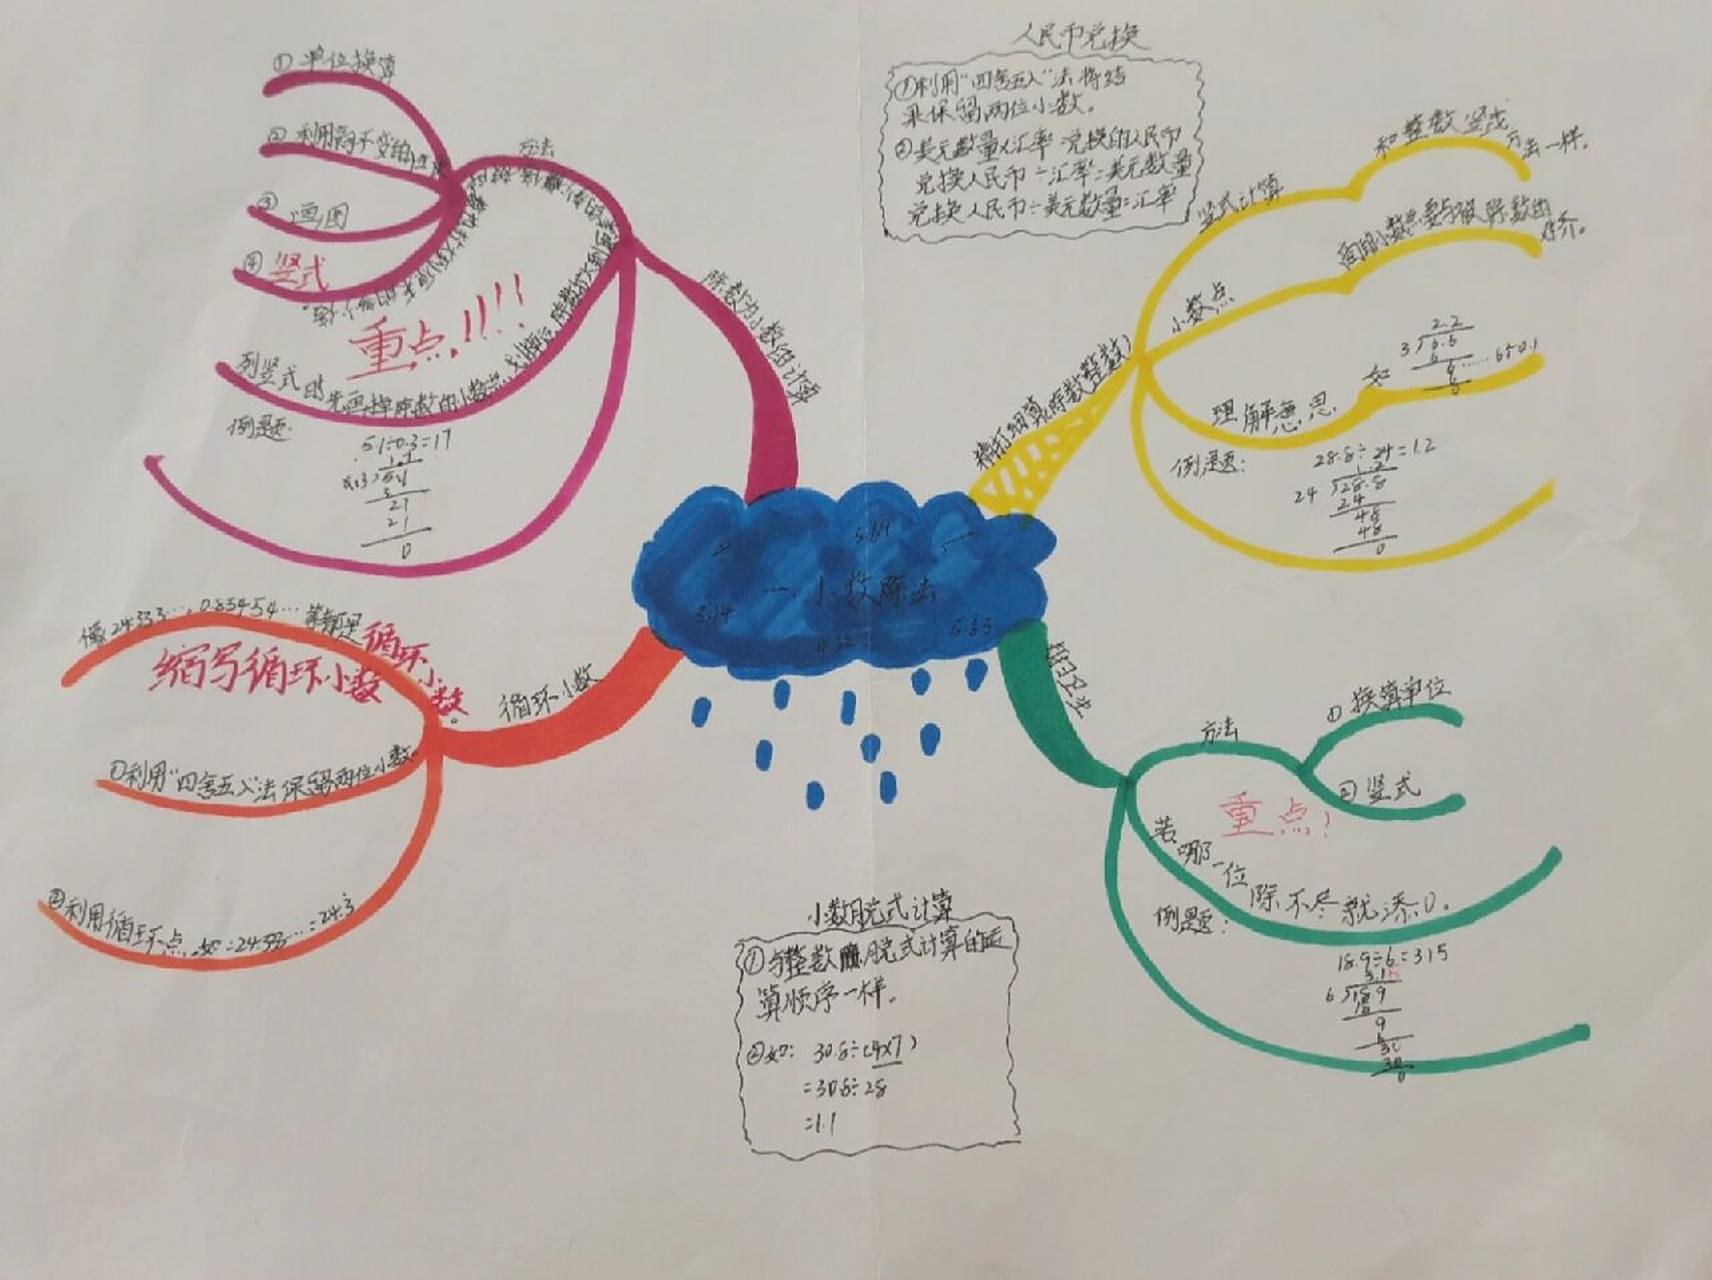 人民币兑换
①利用“四舍五入”法将结
果保留两位小数。
②美元数量×汇率=兑换的人民币
兑换人民币÷汇率=美元数量
兑换人民币÷美元数量=汇率
①单位换算
②利用商不变的
③画图
④竖式
方法
重点!!!!
除数为小数的计算
列竖式时先画掉除数的小数点
例题:
5.1÷0.3=17
21
21
0
精打细算(除数整数)
竖式计算
和整数竖式
方法一样。
小数点
商的小数点要与被除数的
对齐。
理解意思
如
2.2
3
6.6
6
例题:
28.8÷24=1.2
1.2
24 28.8
24
48
48
0
一、小数除法
5.69
3.14
5.63
循环小数
像 24.333…,0.85454…等都是循环小数。
缩写循环小数
①利用“四舍五入”法保留两位小数。
②利用循环点,如:24.33…=24.3
扫卫生
方法
①换算单位
②竖式
重点!
若哪一位除不尽就添0。
例题:
18.9÷6=3.15
6 18.9
18
9
6
30
30
0
小数脱式计算
①与整数脱式计算的运
算顺序一样。
②如: 30.8÷(4×7)
=30.8÷28
=1.1